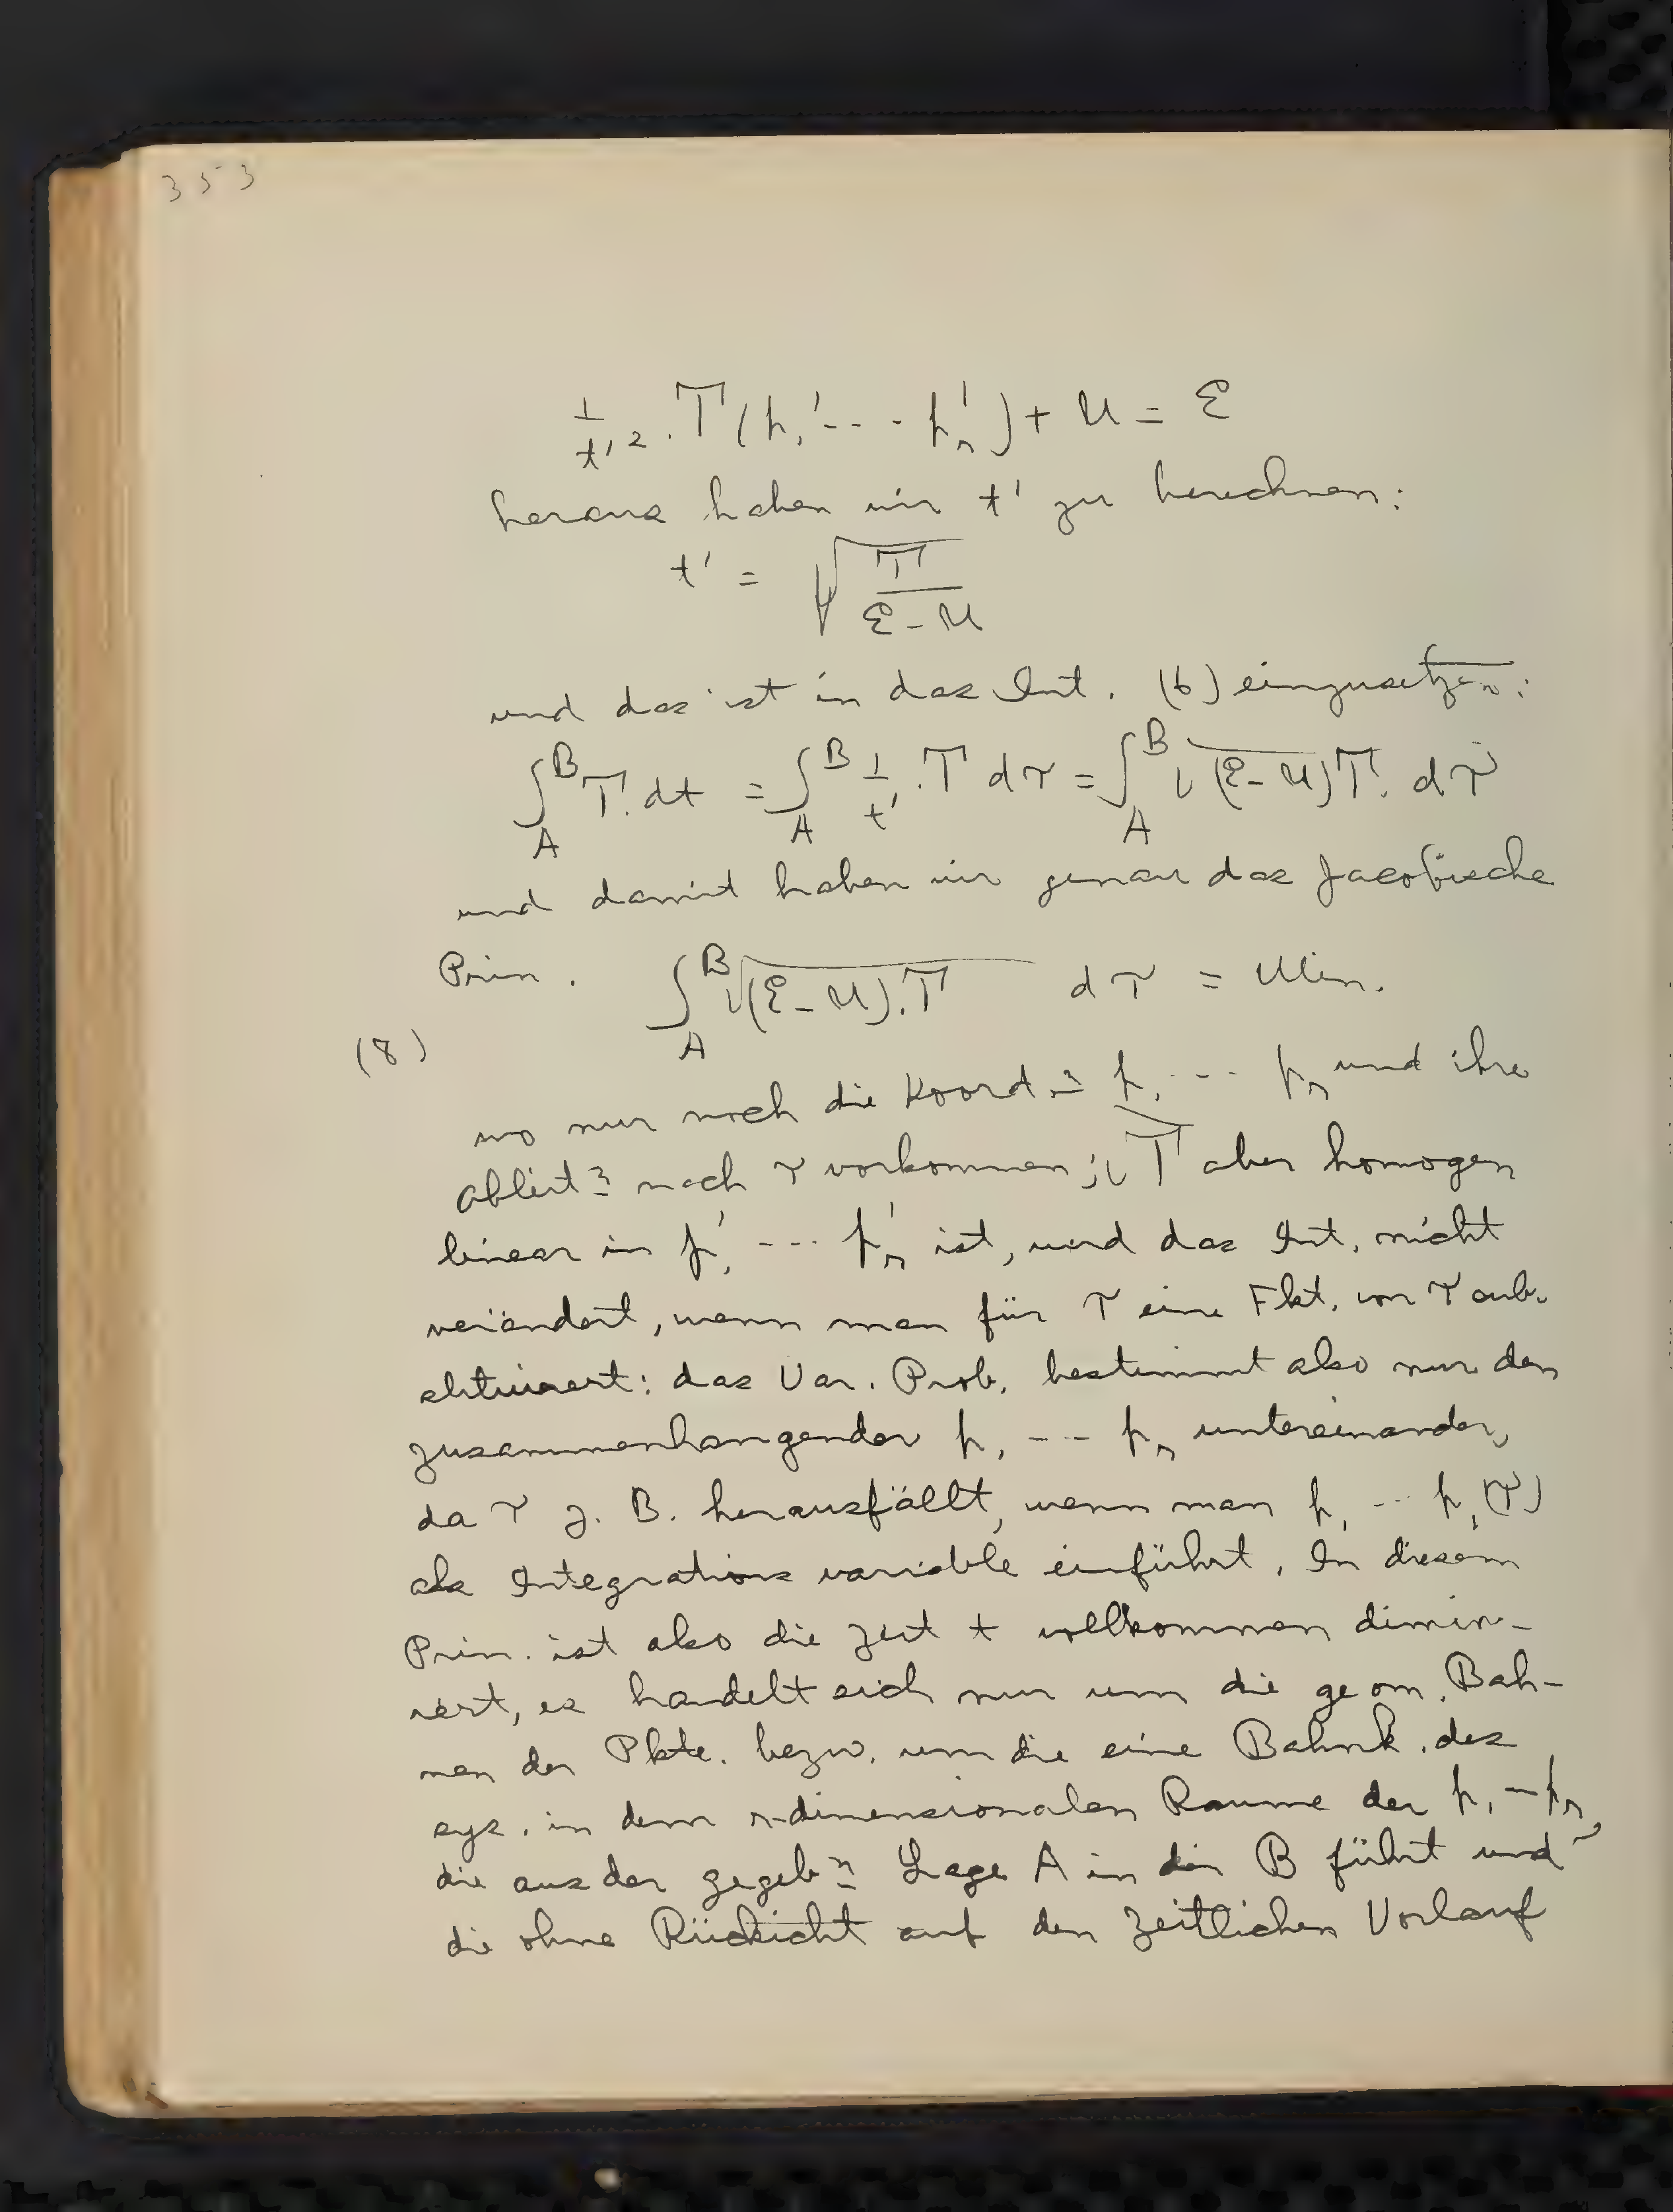 353
1/t'² . T(p₁' --- pₙ') + U = ℰ
heraus haben wir t' zu berechnen:
t' = √(T/(ℰ-U))
und das ist in das Int. (6) einzusetzen:
∫_A^B T. dt = ∫_A^B 1/t' . T dτ = ∫_A^B √((ℰ-U)T). dτ
und damit haben wir genau das Jacobische
Prin. ∫_A^B √((ℰ-U).T) dτ = Min.
(8)
wo nur noch die Koord.n p₁ --- pₙ und ihre
Ableit.n nach τ vorkommen; √T aber homogen
linear in p₁' --- pₙ' ist, und das Int. nicht
verändert, wenn man für τ eine Fkt. von τ sub.
stituiert: das Var. Prob. bestimmt also nur den
zusammenhangender p₁ --- pₙ untereinander,
da τ z. B. herausfällt, wenn man p₁ --- p₁(τ)
als Integrations variable einführt. In diesem
Prin. ist also die Zeit t vollkommen elimin-
iert, es handelt sich nur um die geom. Bah-
nen der Pkte. bezw. um die eine Bahnk. des
sys. in dem n-dimensionalen Raume der p₁ - pₙ,
die aus der gegeb.n Lage A in die B führt und
die ohne Rücksicht auf den zeitlichen Verlauf